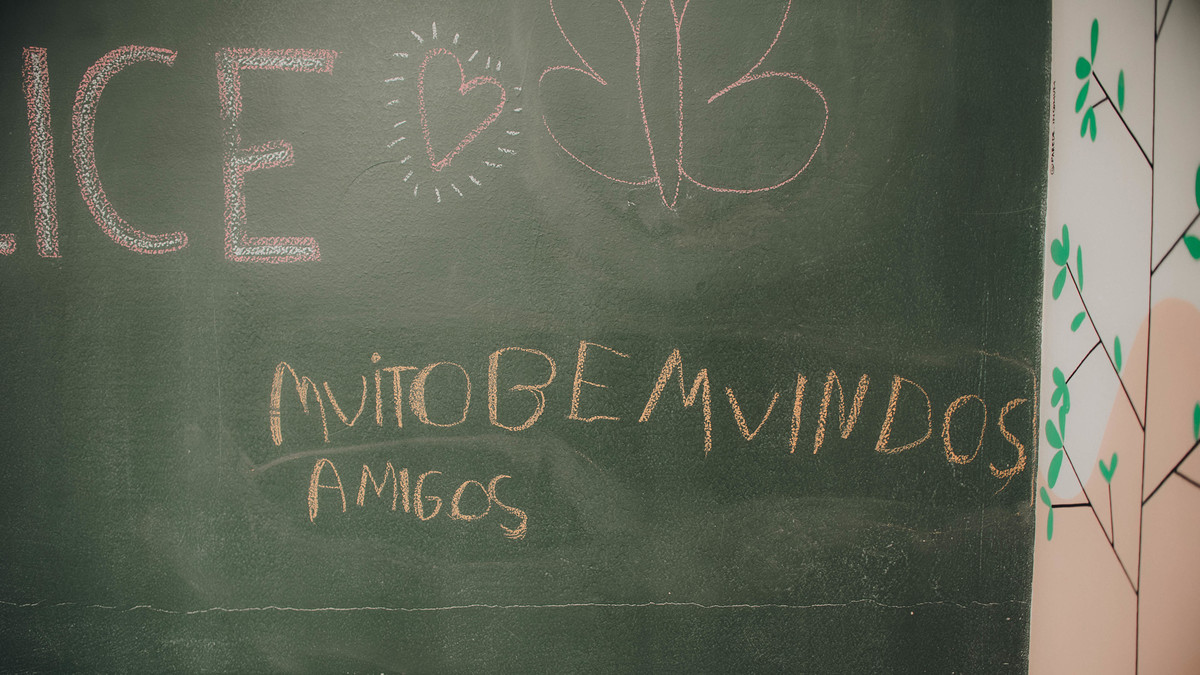 LICE
MUiTO BEMVINDOS
AMIGOS